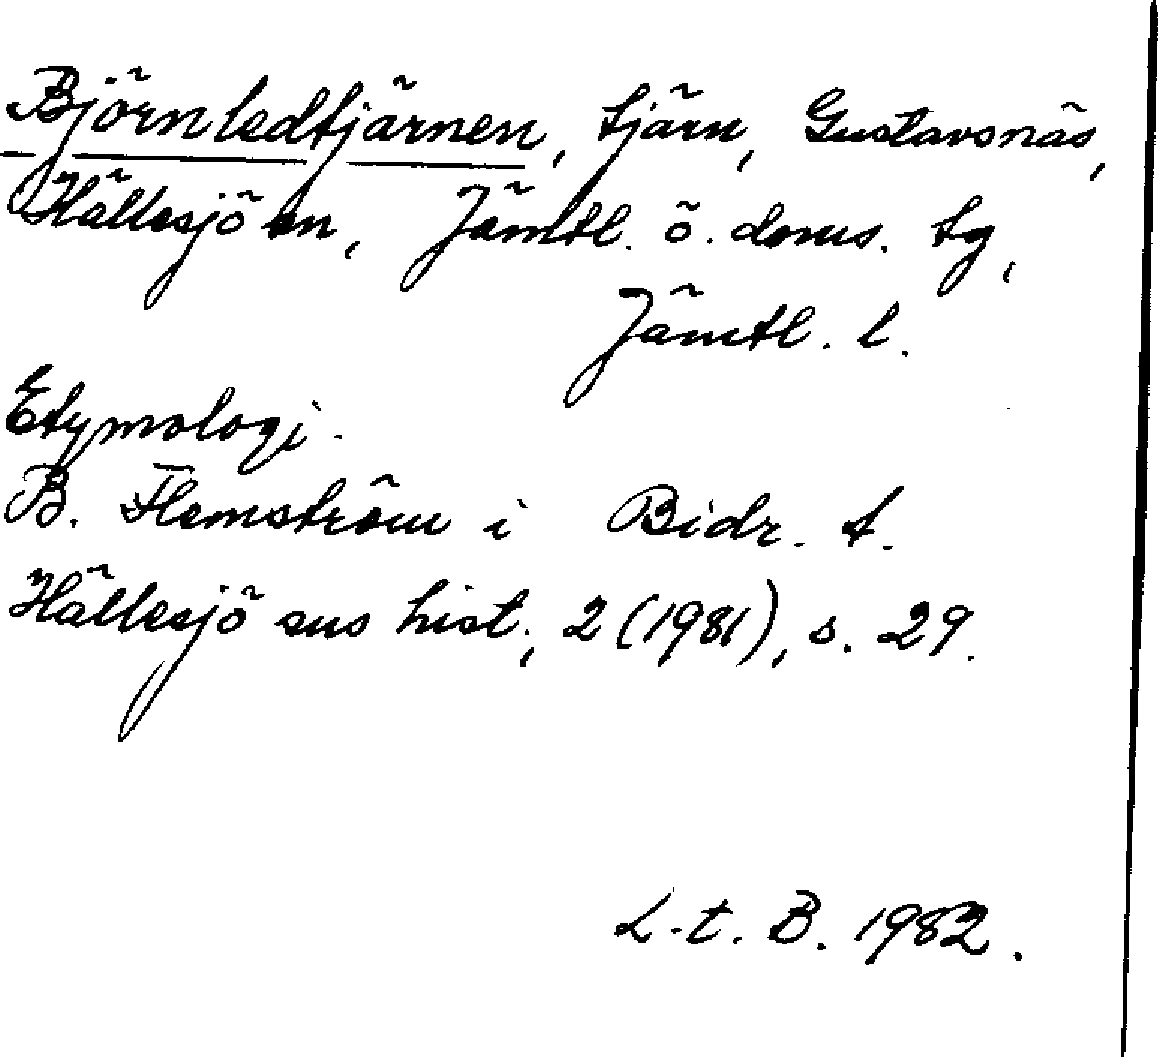 Björnledtjärnen, tjärn, Gustavsnäs,
Hällesjö sn, Jämtl. ö. doms. tg,
Jämtl. l.
Etymologi.
B. Flemström i Bidr. t.
Hällesjö sns hist., 2 (1981), s. 29.
L-t. B. 1982.